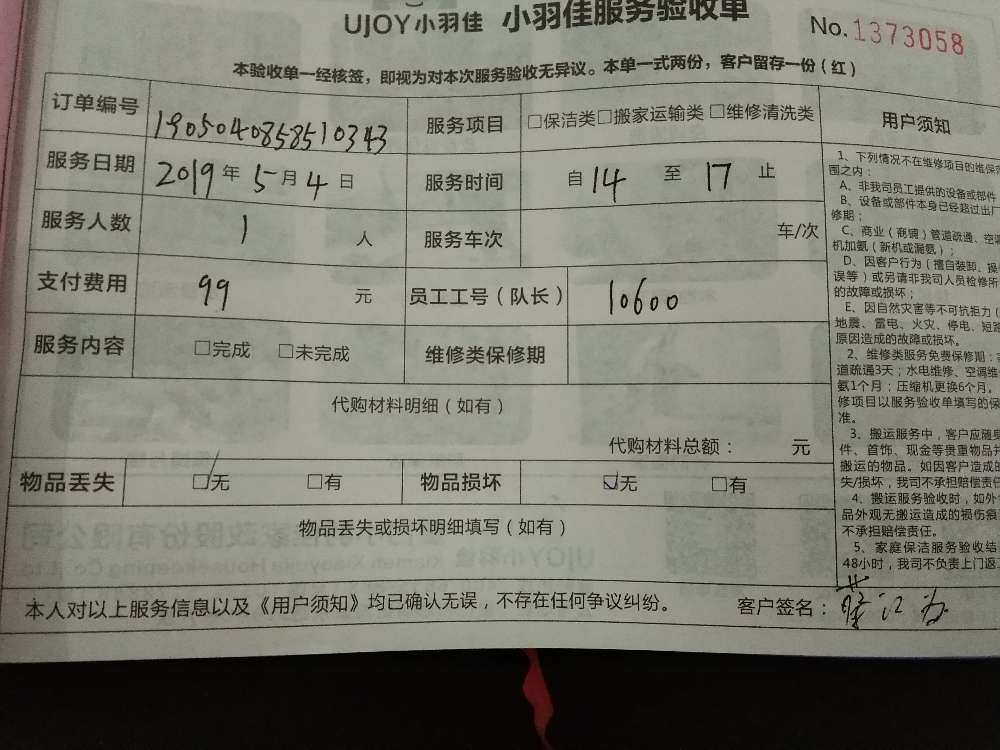 UJOY小羽佳 小羽佳服务验收单
No.1373058
本验收单一经核签，即视为对本次服务验收无异议。本单一式两份，客户留存一份（红）
订单编号 1905040858510343 服务项目 □保洁类□搬家运输类 □维修清洗类
服务日期 2019年5月4日 服务时间 自14至17止
服务人数 1人 服务车次 车/次
支付费用 99元 员工工号（队长） 10600
服务内容 □完成 □未完成 维修类保修期
代购材料明细（如有）
代购材料总额： 元
物品丢失 ☑无 □有 物品损坏 ☑无 □有
物品丢失或损坏明细填写（如有）
本人对以上服务信息以及《用户须知》均已确认无误，不存在任何争议纠纷。 客户签名：
用户须知
1、下列情况不在维修项目的维保
围之内：
A、非我司员工提供的设备或部件
B、设备或部件本身已经超过出厂
修期；
C、商业（商铺）管道疏通、空调
机加氨（新机或漏氨）；
D、因客户行为（擅自装卸、操
误等）或另请非我司人员检修所
的故障或损坏；
E、因自然灾害等不可抗拒力（
地震、雷电、火灾、停电、短路
原因造成的故障或损坏。
2、维修类服务免费保修期：
道疏通3天；水电维修、空调维
氨1个月；压缩机更换6个月。
修项目以服务验收单填写的保
准。
3、搬运服务中，客户应随身
件、首饰、现金等贵重物品并
搬运的物品。如因客户造成的
失/损坏，我司不承担赔偿责任
4、搬运服务验收时，如外
品外观无搬运造成的损伤痕
不承担赔偿责任。
5、家庭保洁服务验收结
48小时，我司不负责上门返